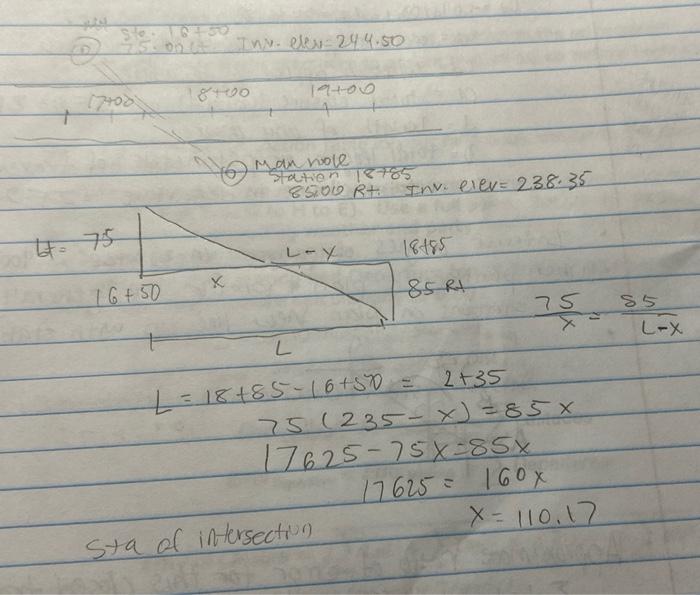 Sta. 16+50
75.00 Lt Inv. elev = 244.50
17+00 18+00 19+00
Man hole
Station 18+85
85.00 Rt. Inv. elev = 238.35
Lt = 75
L-x 18+85
16+50 x 85 Rt
75/x = 85/L-x
L
L = 18+85-16+50 = 2+35
75 (235-x) = 85x
17625-75x=85x
17625 = 160x
x = 110.17
Sta of intersection